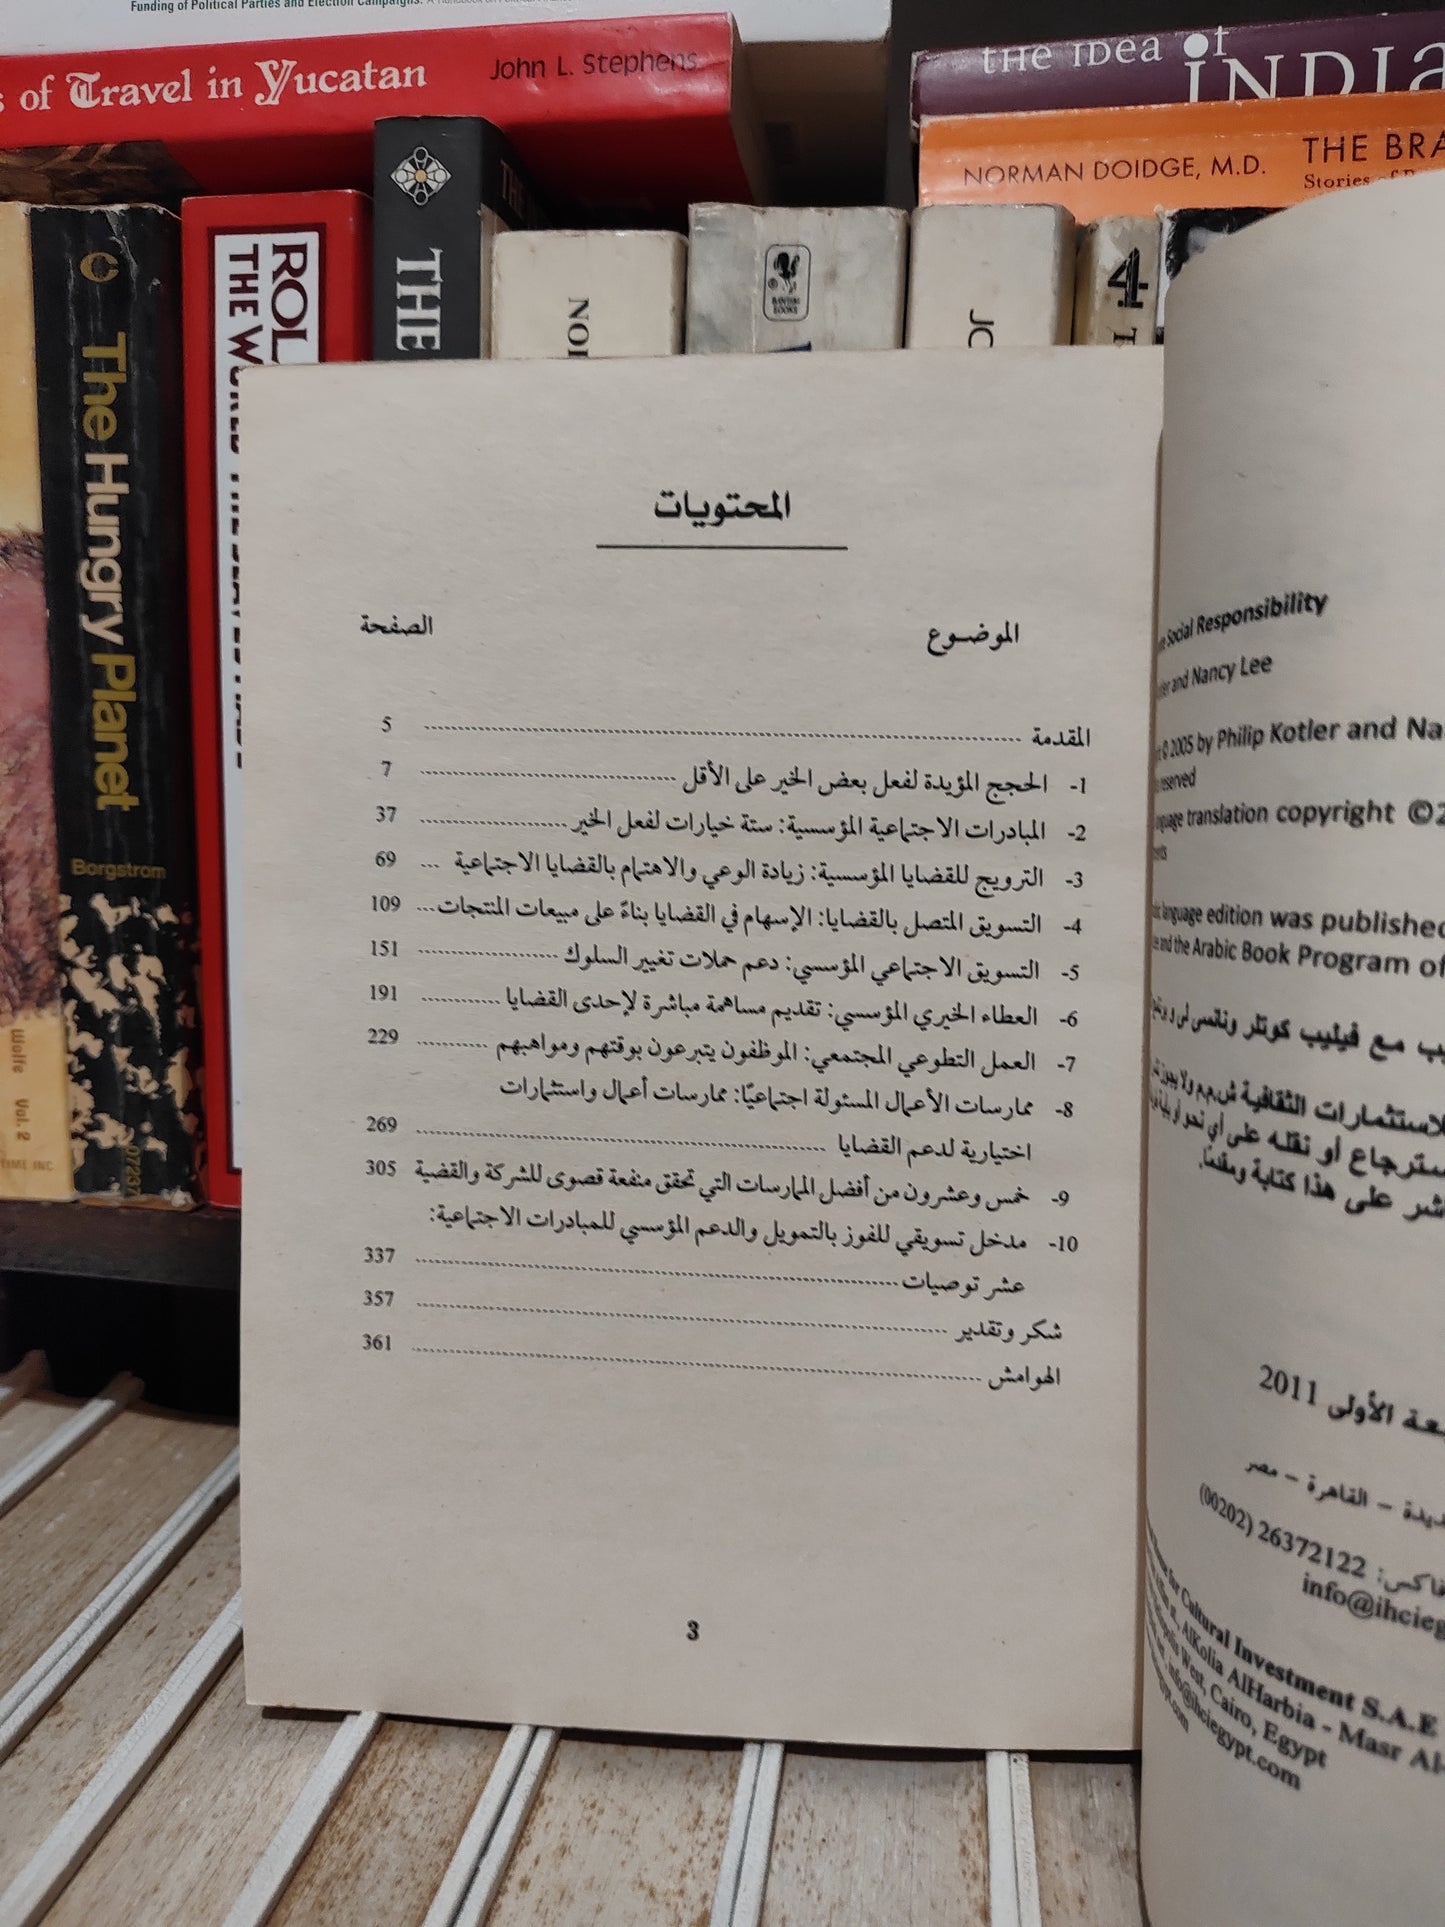 Funding of Political Parties and Election Campaigns.
of Travel in Yucatan John L. Stephens
THE IDEA of INDIA
NORMAN DOIDGE, M.D. THE BRA
Stories of
The Hungry Planet
Borgstrom
ROL
THE
THE
NOI
BANTAM BOOKS
JO
4
Wolfe Vol. 2
TIME INC
المحتويات
الموضـوع الصفحة
المقدمة 5
1- الحجج المؤيدة لفعل بعض الخير على الأقل 7
2- المبادرات الاجتماعية المؤسسية: ستة خيارات لفعل الخير 37
3- الترويج للقضايا المؤسسية: زيادة الوعي والاهتمام بالقضايا الاجتماعية ... 69
4- التسويق المتصل بالقضايا: الإسهام في القضايا بناءً على مبيعات المنتجات... 109
5- التسويق الاجتماعي المؤسسي: دعم حملات تغيير السلوك 151
6- العطاء الخيري المؤسسي: تقديم مساهمة مباشرة لإحدى القضايا 191
7- العمل التطوعي المجتمعي: الموظفون يتبرعون بوقتهم ومواهبهم 229
8- ممارسات الأعمال المسئولة اجتماعيًا: ممارسات أعمال واستثمارات
اختيارية لدعم القضايا 269
9- خمس وعشرون من أفضل الممارسات التي تحقق منفعة قصوى للشركة والقضية 305
10- مدخل تسويقي للفوز بالتمويل والدعم المؤسسي للمبادرات الاجتماعية:
عشر توصيات 337
شكر وتقدير 357
الهوامش 361
3
Social Responsibility
and Nancy Lee
© 2005 by Philip Kotler and Na
reserved
translation copyright ©2
language edition was published
and the Arabic Book Program of
مع فيليب كوتلر ونانسى لى و
للاستثمارات الثقافية ش.م.م ولا يجوز
سترجاع أو نقله على أي نحو أو
شر على هذا كتابة ومقدمًا.
عة الأولى 2011
ديدة – القاهرة – مصر
فاكس: 26372122 (00202)
info@ihcieg
for Cultural Investment S.A.E
AlKolia AlHarbia - Masr Al-
West, Cairo, Egypt
info@ihciegypt.com